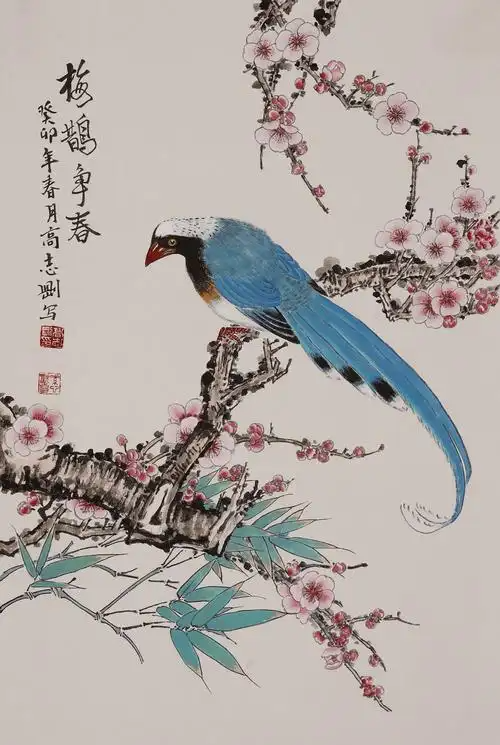 梅鹊争春
癸卯年春月高志刚写